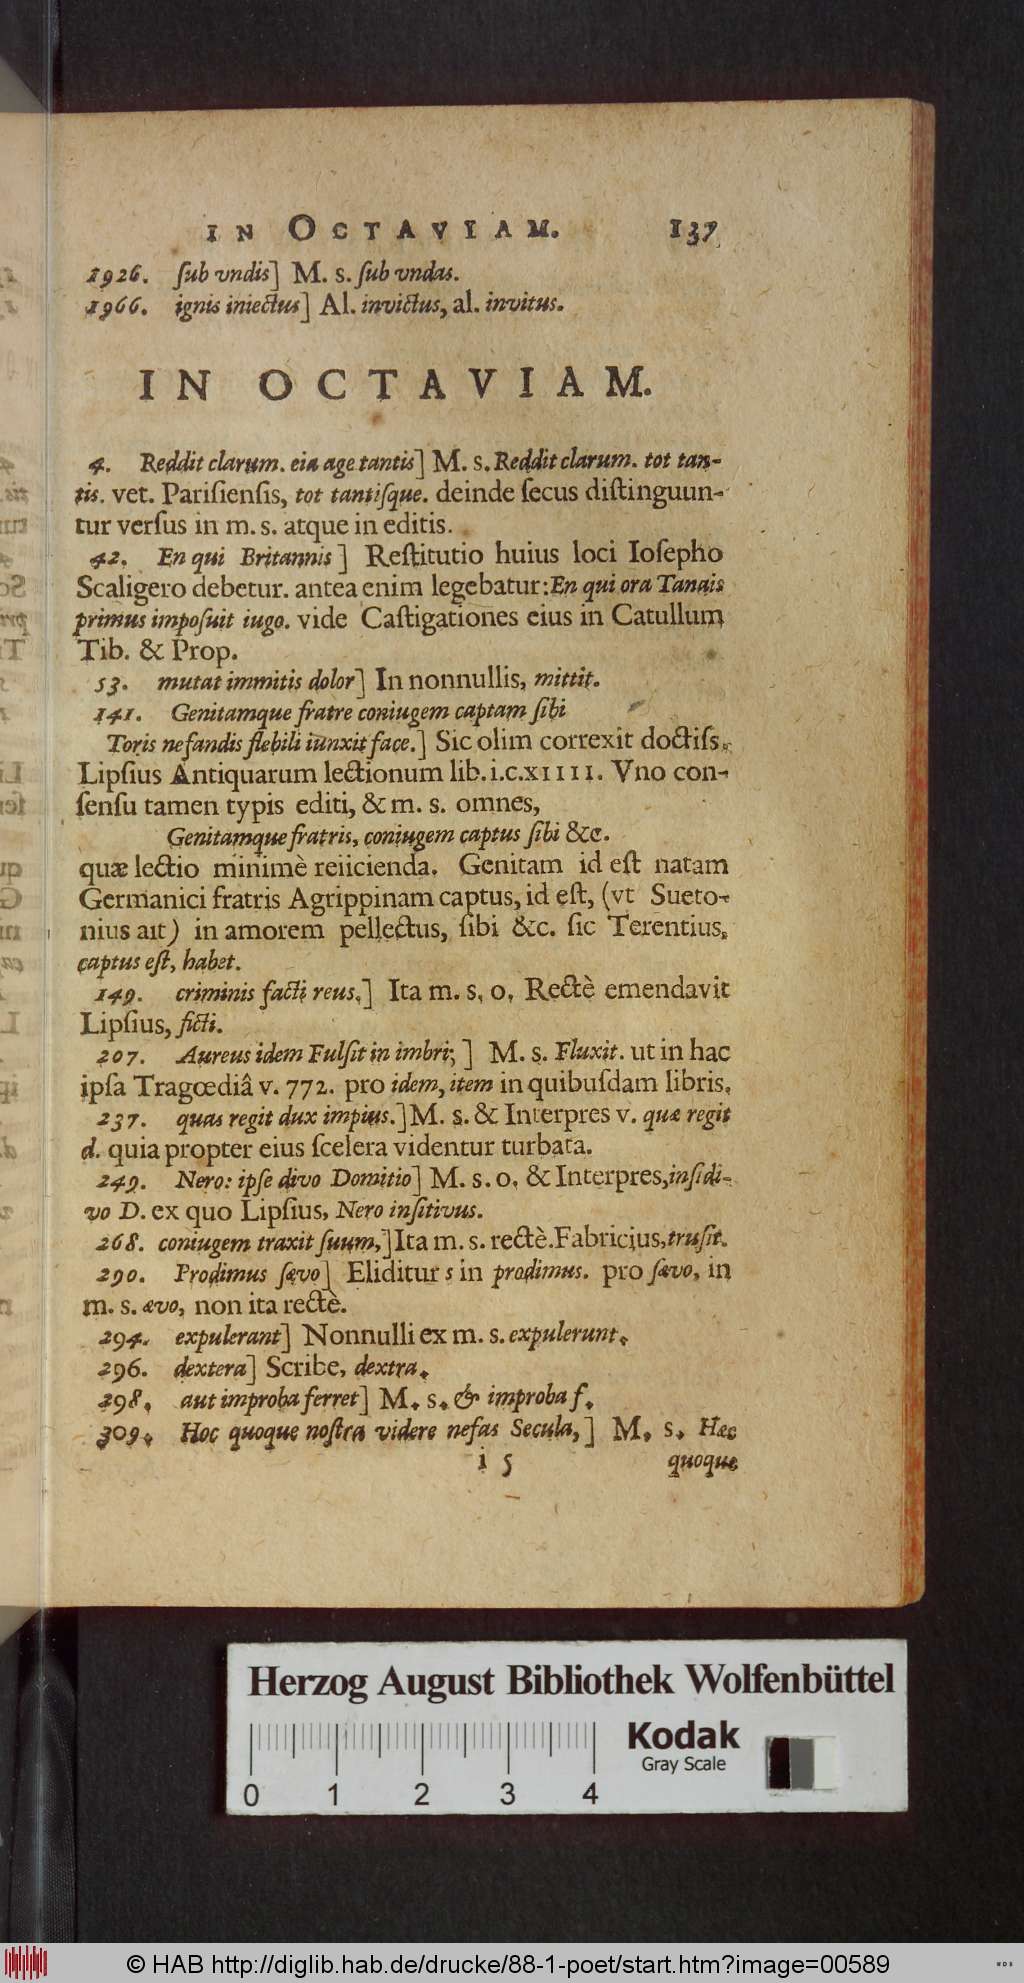 IN OCTAVIAM. 137
1926. ſub vndis] M. s. ſub vndas.
1966. ignis iniectus] Al. invictus, al. invitus.
IN OCTAVIAM.
4. Reddit clarum. eia age tantis] M. s. Reddit clarum. tot tan-
tis. vet. Pariſienſis, tot tantiſque. deinde ſecus diſtinguun-
tur verſus in m. s. atque in editis.
42. En qui Britannis] Reſtitutio huius loci Ioſepho
Scaligero debetur. antea enim legebatur: En qui ora Tanais
primus impoſuit iugo. vide Caſtigationes eius in Catullum
Tib. & Prop.
53. mutat immitis dolor] In nonnullis, mittit.
141. Genitamque fratre coniugem captam ſibi
Toris nefandis flebili iunxit face.] Sic olim correxit doctiſs.
Lipſius Antiquarum lectionum lib. i. c. XIIII. Vno con-
ſenſu tamen typis editi, & m. s. omnes,
Genitamque fratris, coniugem captus ſibi &c.
quæ lectio minimè reiicienda. Genitam id eſt natam
Germanici fratris Agrippinam captus, id eſt, (vt Sueto-
nius ait) in amorem pellectus, ſibi &c. ſic Terentius,
captus eſt, habet.
149. criminis facti reus,] Ita m. s. o. Rectè emendavit
Lipſius, ficti.
207. Aureus idem Fulſit in imbri;] M. s. Fluxit. ut in hac
ipſa Tragœdiâ v. 772. pro idem, item in quibuſdam libris.
237. quas regit dux impius.] M. s. & Interpres v. quæ regit
d. quia propter eius ſcelera videntur turbata.
249. Nero: ipſe divo Domitio] M. s. o. & Interpres, inſidi-
vo D. ex quo Lipſius, Nero inſitivus.
268. coniugem traxit ſuum,] Ita m. s. rectè. Fabricius, truſit.
290. Prodimus ſævo] Eliditur s in prodimus. pro ſævo, in
m. s. ævo, non ita rectè.
294. expulerant] Nonnulli ex m. s. expulerunt.
296. dextera] Scribe, dextra.
298. aut improba ferret] M. s. & improba f.
309. Hoc quoque noſtra videre nefas Secula,] M. s. Hæc
i 5 quoque
Herzog August Bibliothek Wolfenbüttel
Kodak
Gray Scale
0 1 2 3 4
© HAB http://diglib.hab.de/drucke/88-1-poet/start.htm?image=00589